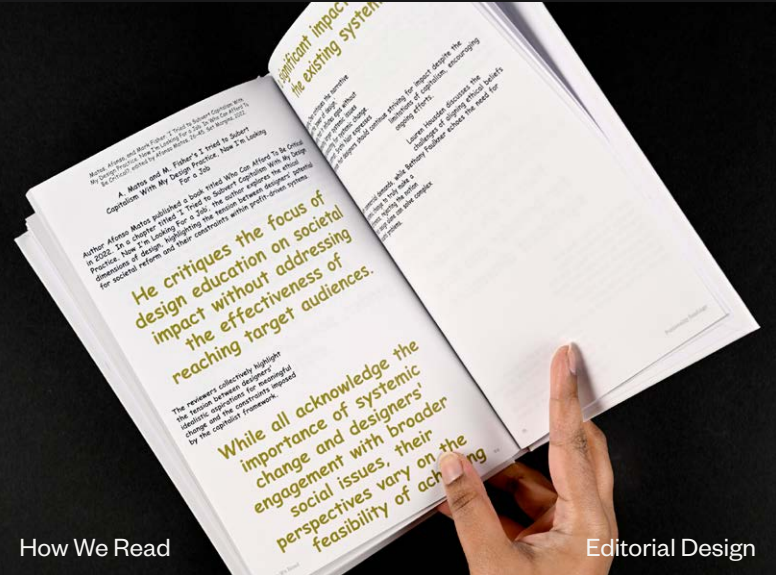 Matos, Afonso, and Mark Fisher. I Tried to Subvert Capitalism With
My Design Practice. Now I'm Looking For a Job. In Who Can Afford To
Be Critical?, edited by Afonso Matos, 26–45. Set Margins, 2022.
A. Matos and M. Fisher's I tried to Subert
Capitalism With My Design Practice, Now I'm Looking
For a Job
Author Afonso Matos published a book titled Who Can Afford To Be Critical
in 2022. In a chapter titled I Tried to Subvert Capitalism With My Design
Practice. Now I'm Looking For a Job, the author explores the ethical
dimensions of design, highlighting the tension between designers' potential
for societal reform and their constraints within profit-driven systems.
He critiques the focus of
design education on societal
impact without addressing
the effectiveness of
reaching target audiences.
The reviewers collectively highlight
the tension between designers'
idealistic aspirations for meaningful
change and the constraints imposed
by the capitalist framework.
While all acknowledge the
importance of systemic
change and designers'
engagement with broader
social issues, their
perspectives vary on the
feasibility of
significant impact
the existing system
continue striving for impact despite the
limitations of capitalism, encouraging
ongoing efforts.
Lauren Housden discusses the
challenges of aligning ethical beliefs
while Bethany Faulkner echoes the need for
How We Read
Editorial Design